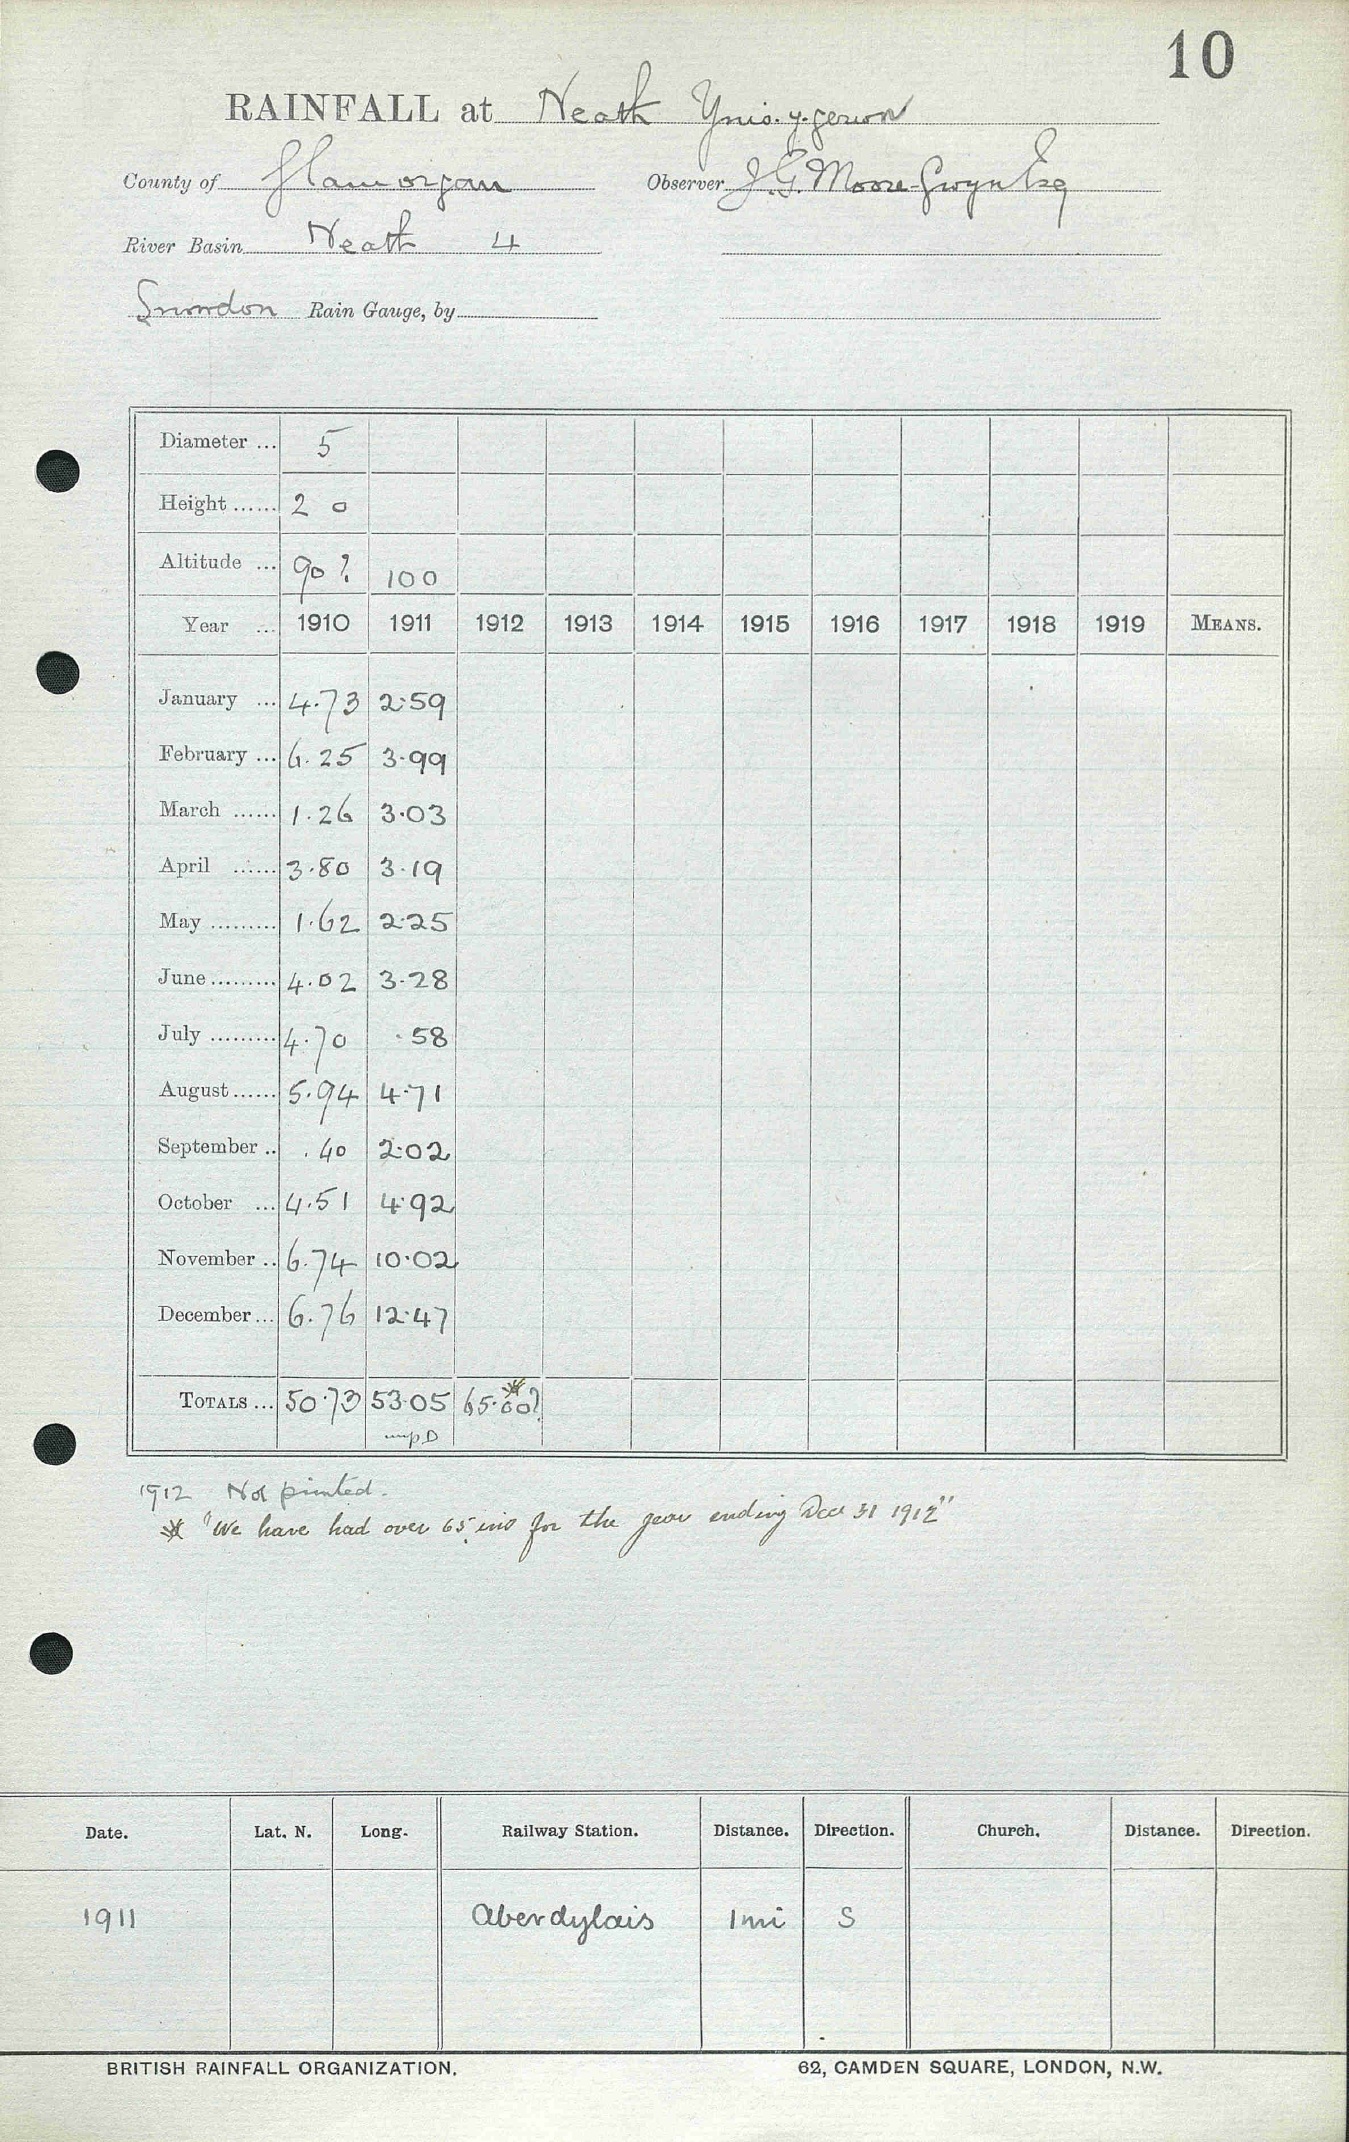 10
RAINFALL at Neath Ynis-y-gerwn
County of Glamorgan Observer J.G. Moore-Gwyn Esq
River Basin Neath 4
Snowdon Rain Gauge, by
Diameter ... 5
Height ...... 2 0
Altitude ... 90? 100
Year ... 1910 1911 1912 1913 1914 1915 1916 1917 1918 1919 MEANS.
January ... 4.73 2.59
February ... 6.25 3.99
March ...... 1.26 3.03
April ...... 3.80 3.19
May ......... 1.62 2.25
June ......... 4.02 3.28
July ......... 4.70 .58
August ...... 5.94 4.71
September .. .40 2.02
October ... 4.51 4.92
November .. 6.74 10.02
December ... 6.76 12.47
TOTALS ... 50.73 53.05 65.00?
1912 Not printed.
"We have had over 65 ins for the year ending Dec 31 1912"
Date. Lat. N. Long. Railway Station. Distance. Direction. Church. Distance. Direction.
1911 Aberdylais 1 mi S
BRITISH RAINFALL ORGANIZATION. 62, CAMDEN SQUARE, LONDON, N.W.